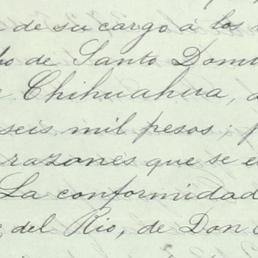 de su cargo á los
de Santo Dom
Chihuahua,
seis mil pesos:
razones que se e
La conformidad
del Rio, de Don